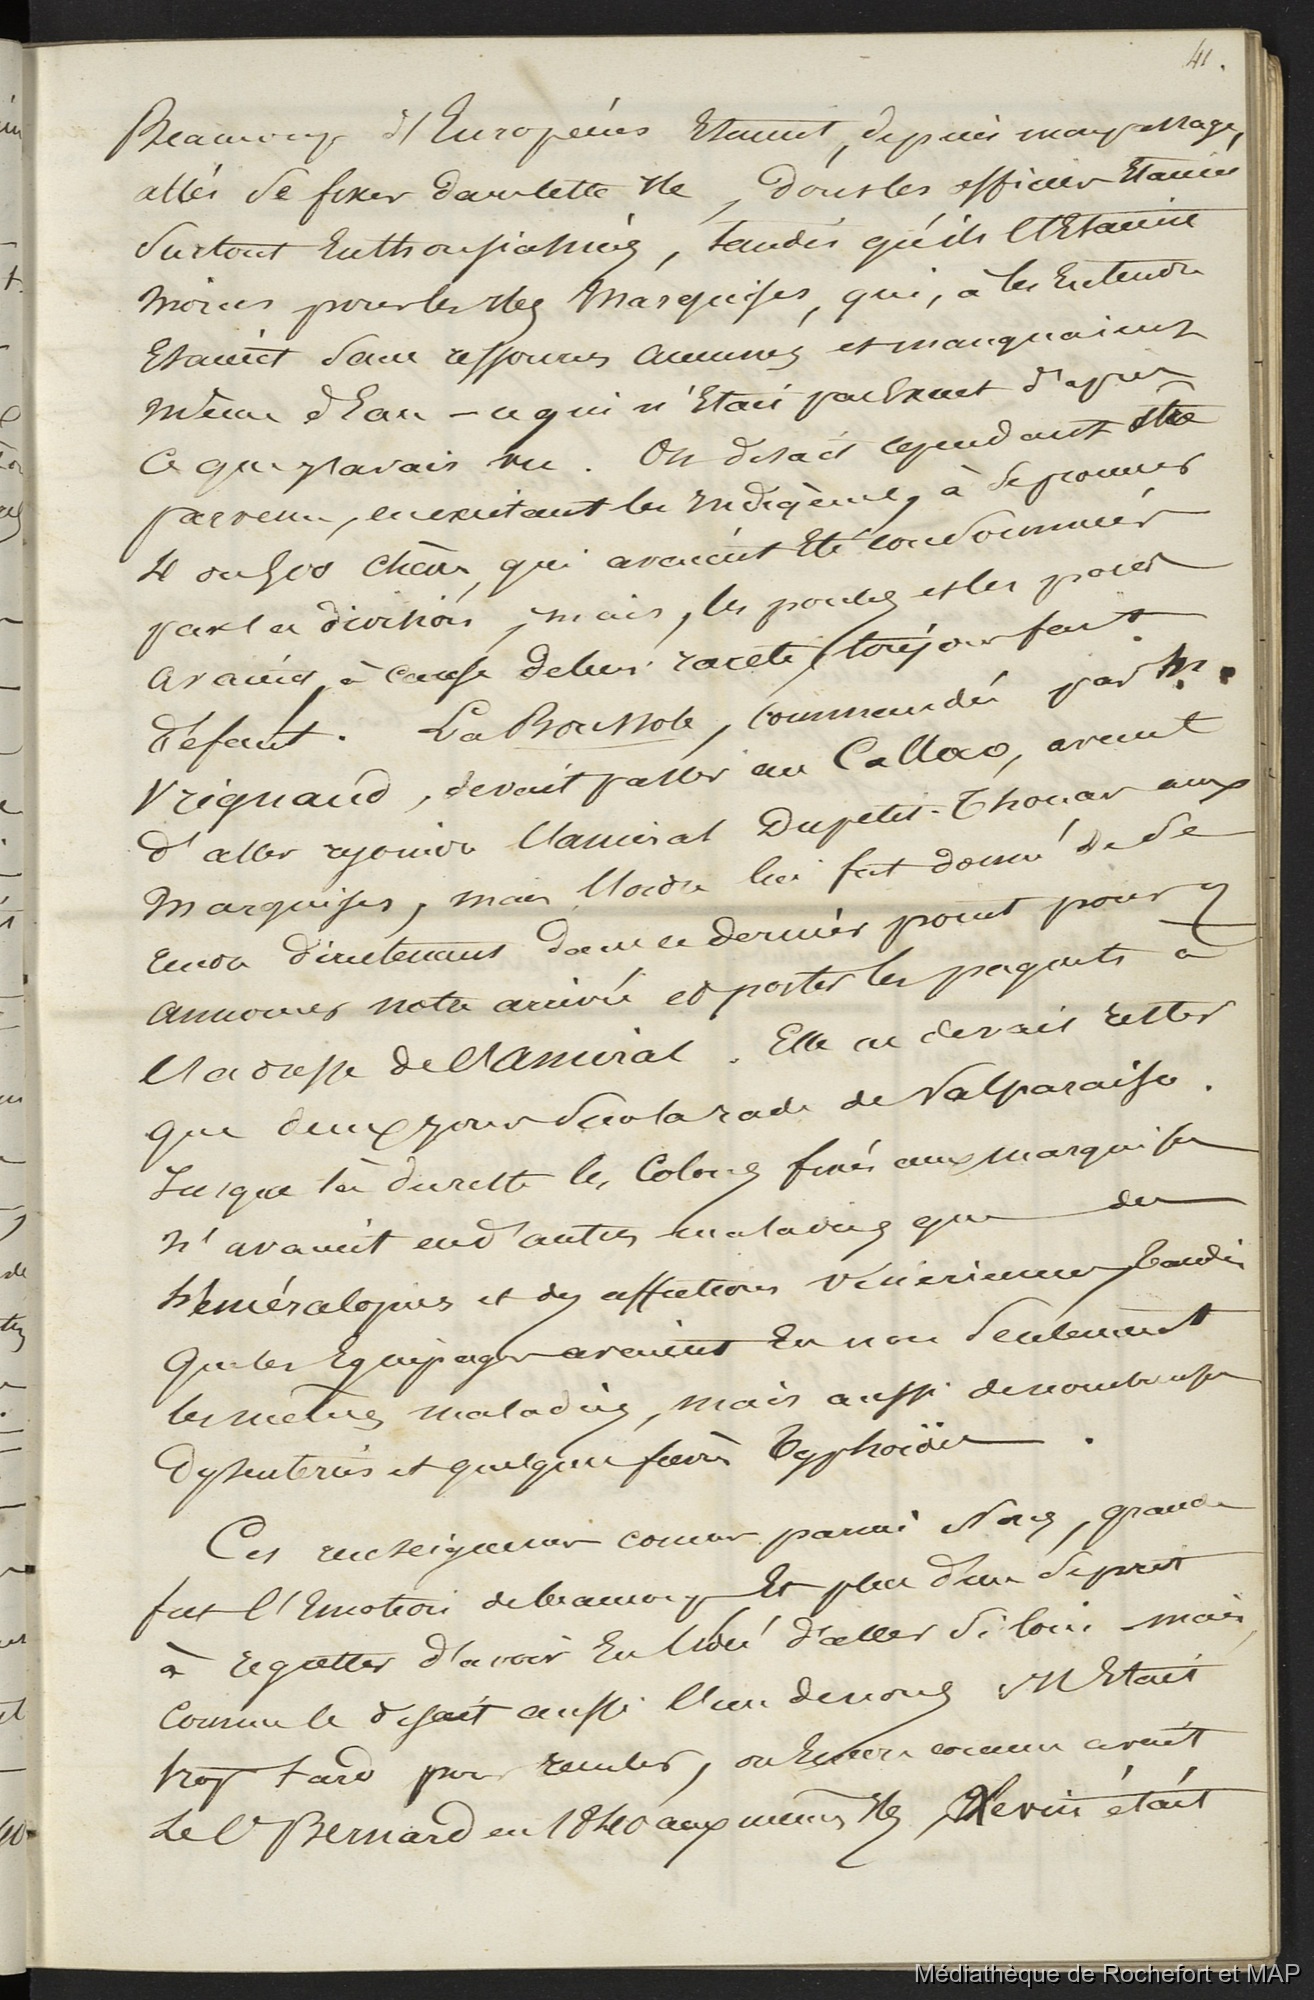 41.
Beaucoup d'Européens Etaient, depuis mon passage,
allés se fixer dans cette Ile, dont les officiers Etaient
surtout Enthousiasmés, tandis qu'ils l'Etaient
moins pour les Iles Marquises, qui, à les Entendre
Etaient sans ressources aucunes et manquaient
même d'Eau – ce qui n'Etait pas Exact d'après
ce que j'avais vu. On disait cependant être
parvenu, en excitant les Indigènes, à se procurer
4 ou 500 chèvres, qui avaient Eté consommées
par la division, mais, les poules et les porcs
avaient, à cause de leur rareté, toujours fait
défaut. La Boussole, commandée par Mr.
Vrignaud, devait passer au Callao, avant
d'aller rejoindre l'amiral Dupetit-Thouars aux
Marquises, mais l'ordre lui fut donné de se
rendre directement dans ce dernier point pour y
annoncer notre arrivée et porter les paquets à
l'adresse de l'Amiral. Elle ne devait rester
que deux jours sur la rade de Valparaiso.
Jusque là du reste les Colons fixés aux Marquises
n'avaient eu d'autres maladies que des
héméralopies et des affections vénériennes, tandis
que les Equipages avaient Eu non seulement
les mêmes maladies, mais aussi de nombreuses
dysenteries et quelques fièvres typhoïdes.
Ces renseignemens connus parmi Nous, grande
fut l'Emotion de beaucoup Et plus d'un se prit
à regretter d'avoir Eu l'idée d'aller si loin – mais,
comme le disait aussi l'un de nous, Il Etait
trop tard pour reculer, ou Encore comme avait
dit Bernard en 1840 aux mêmes Iles, Le vin était